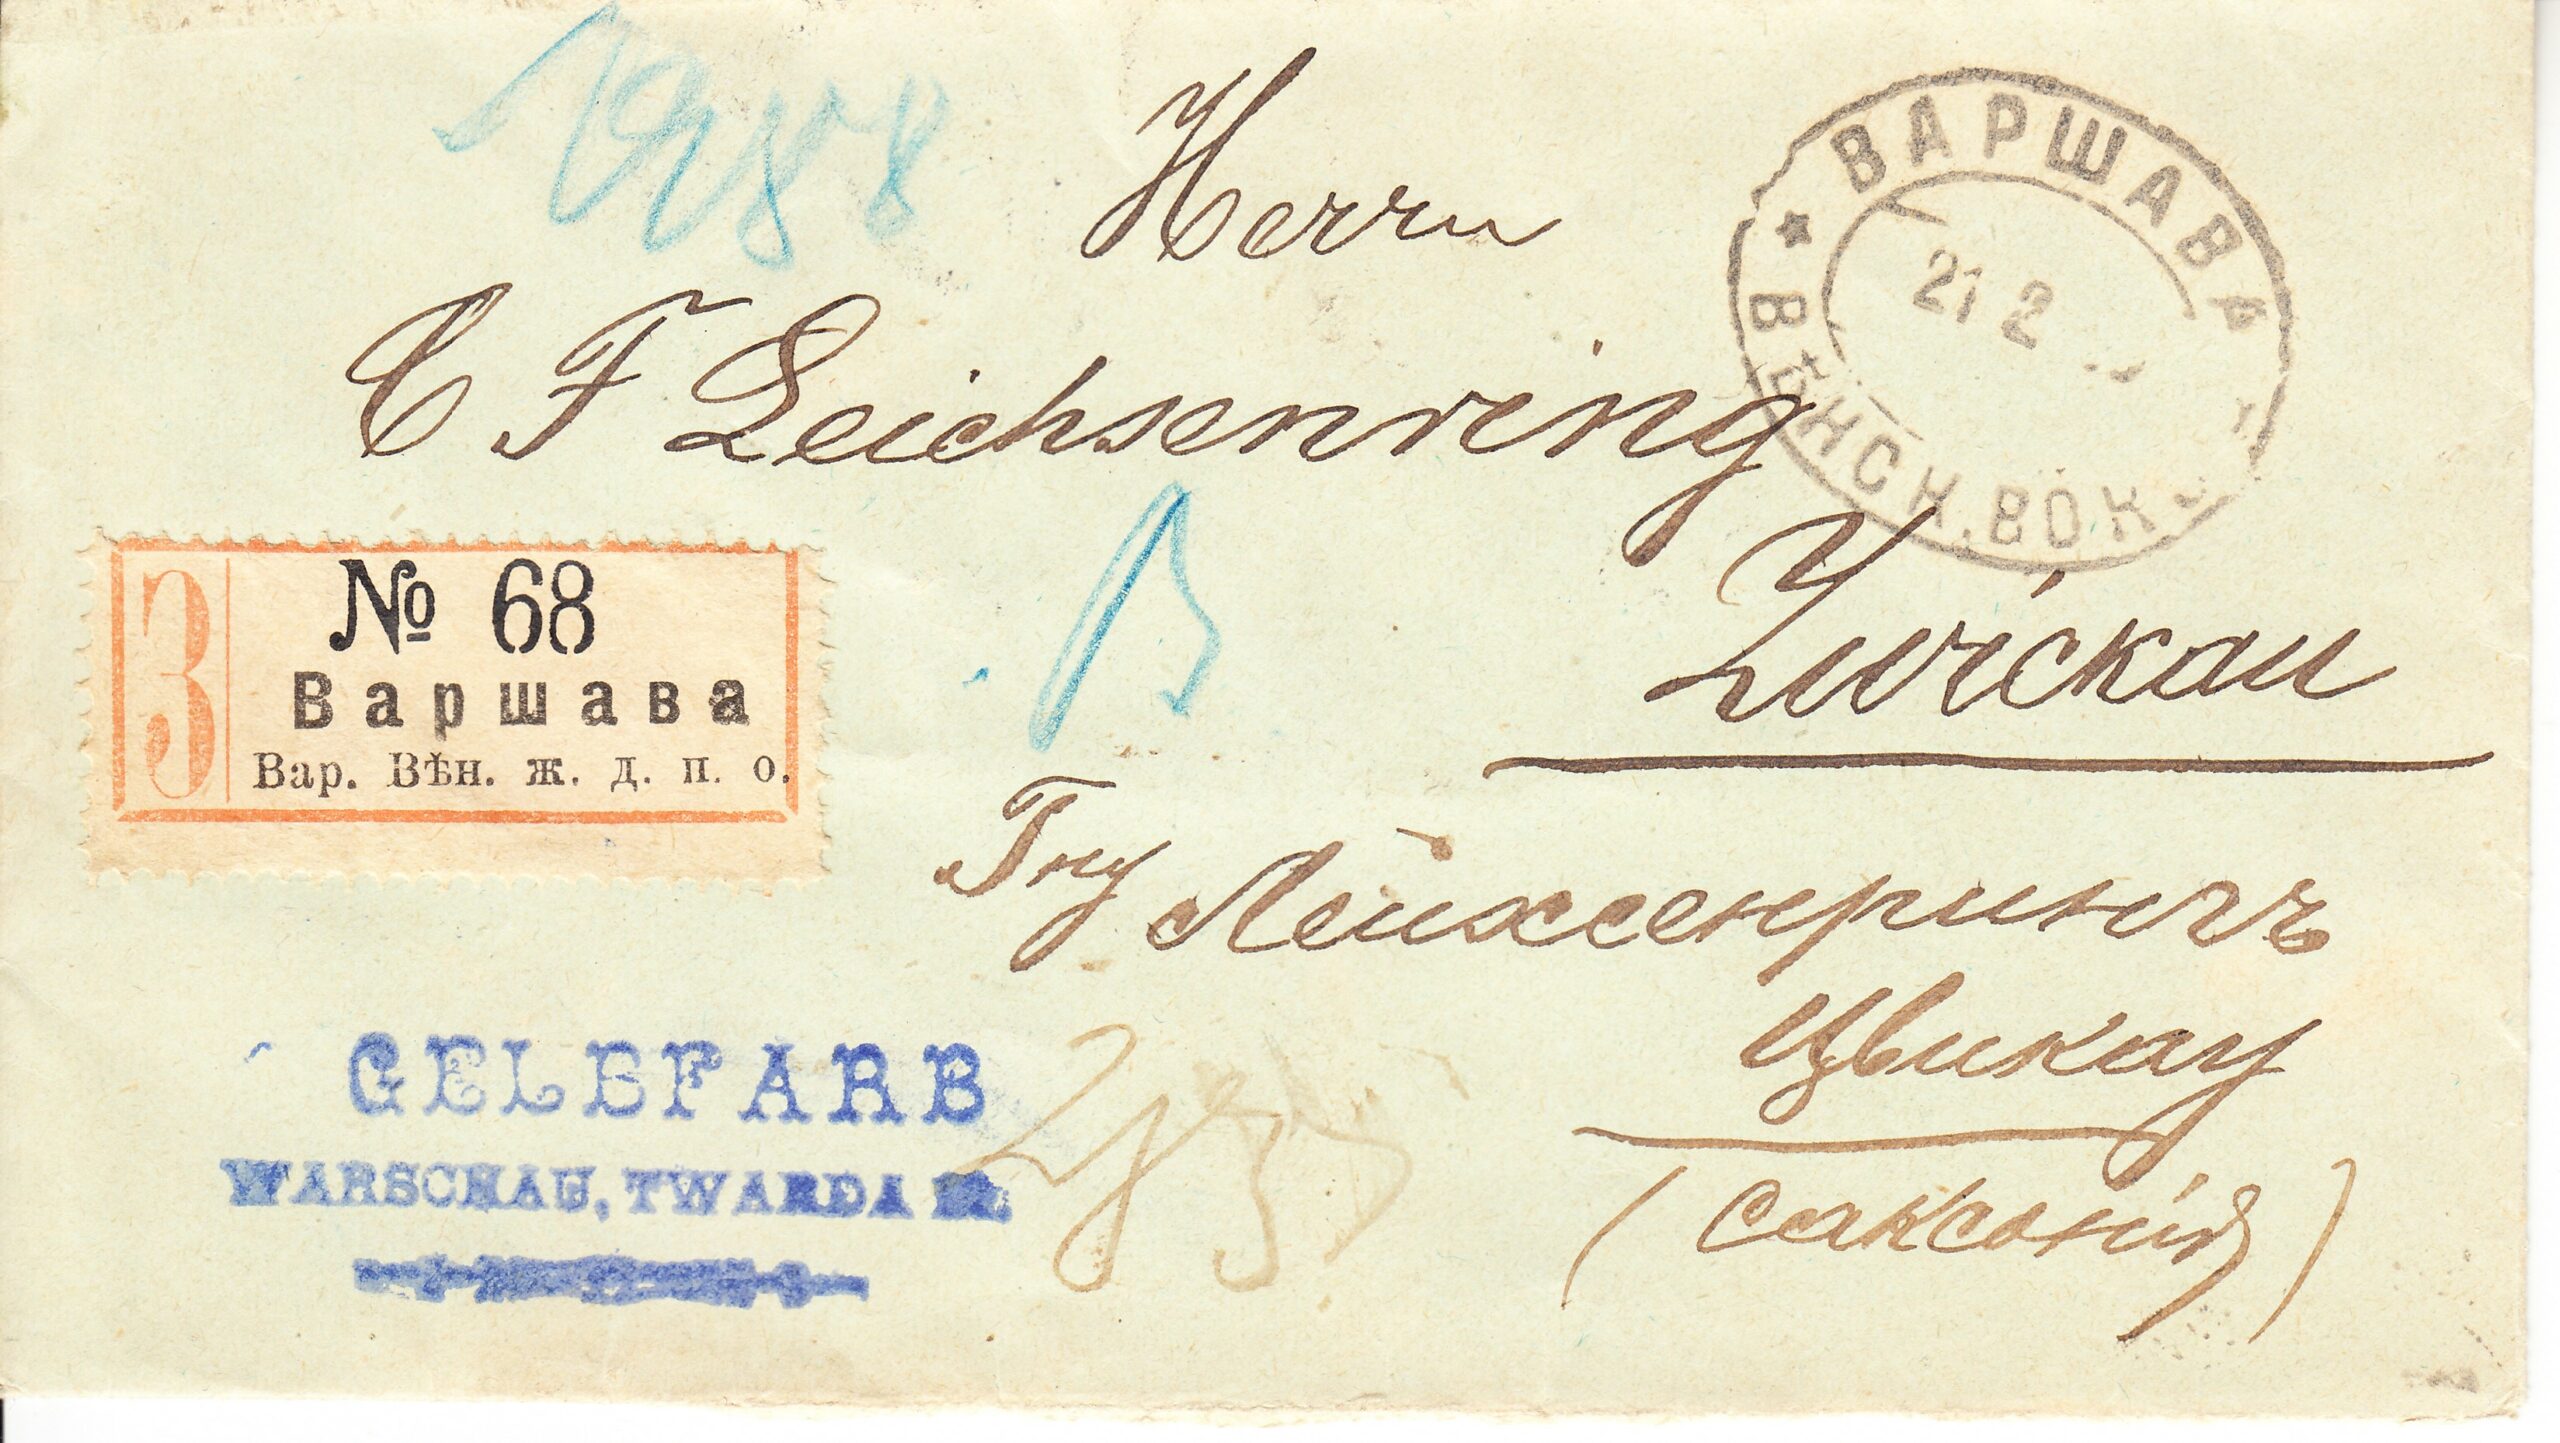 Herrn
C F Leichsenring
Zwickau
ВАРШАВА
21 2
ВѢНСК. ВОК
З
№ 68
Варшава
Вар. Вѣн. ж. д. п. о.
В
Гну Лейхсенрингъ
Цвикау
(Саксонія)
GELBFARB
WARSCHAU, TWARDA